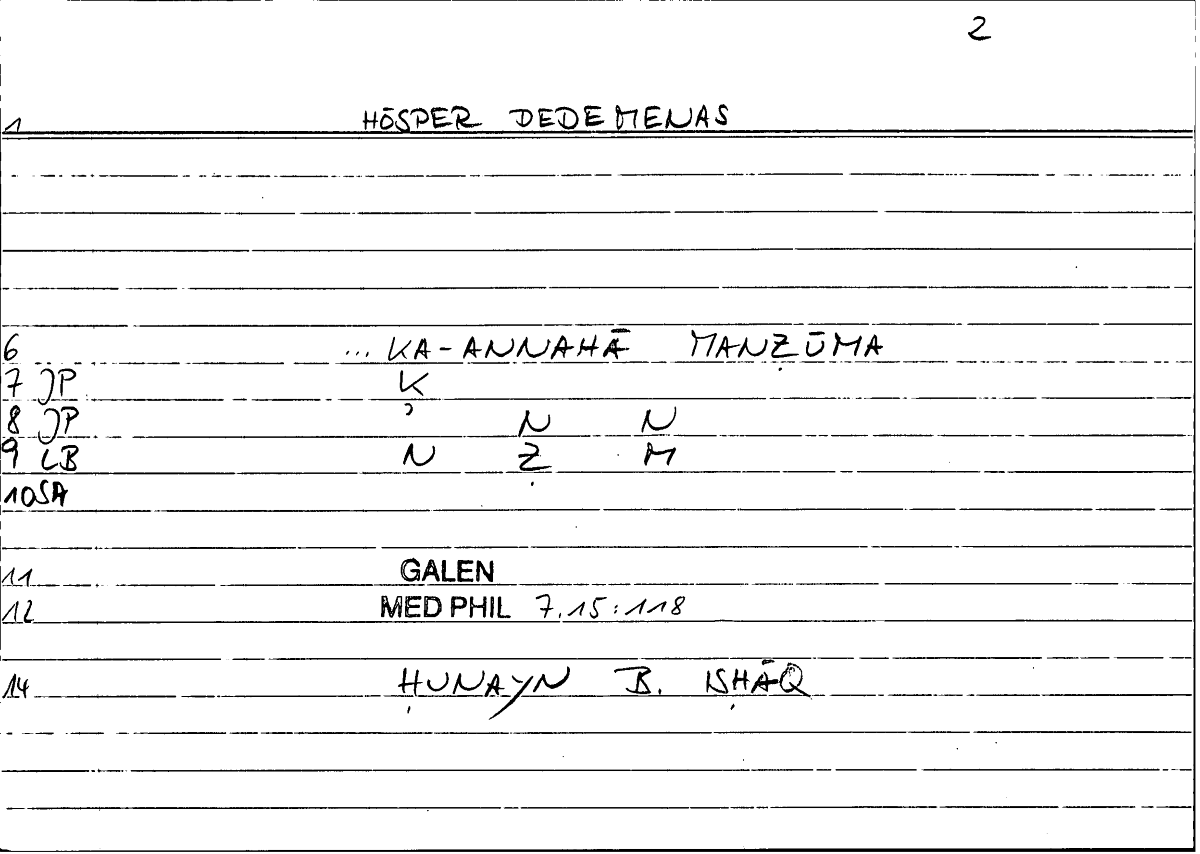 2
1 HŌSPER DEDEMENAS
6 ... KA-ANNAHĀ MANẒŪMA
7 JP Ḳ
8 JP N N
9 LB N Ẓ M
10 SA
11 GALEN
12 MED PHIL 7.15:118
14 ḤUNAYN B. ISḤĀQ